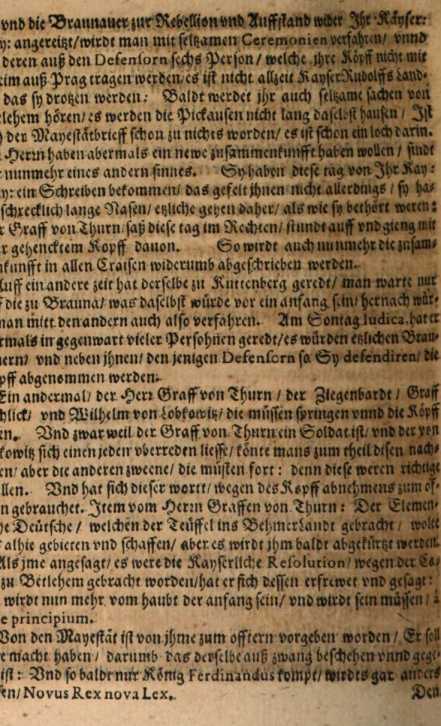 vnd die Braunauer zur Rebellion vnd Auffstand wider Ihr Käyser:
y: angereitzt/ wirdt man mit seltzamen Ceremonien verfahren/ vnnd
deren auß den Defensorn sechs Person/ welche ihre Köpff nicht mit
eim auß Prag tragen werden/ es ist nicht allzeit Kayser Rudolffs Land-
das sy drotzen werden: Baldt werdet jhr auch seltzame sachen von
lehem hören/ es werden die Pickausen nicht lang daselbst hausen/ Ist
der Mayestätbrieff schon zu nichts worden/ es ist schon ein loch darin.
Herrn haben abermals ein newe zusammenkunfft haben wollen/ sindt
nunmehr eines andern sinnes. Sy haben diese tag von Ihr Kay:
y: ein Schreiben bekommen/ das gefelt ihnen nicht allerdings/ sy ha-
schrecklich lange Nasen/ etzliche gehen daher/ als wie sy bethört weren:
r Graff von Thurn/ saß diese tag im Rechten/ stundt auff vnd gieng mit
er gehencktem Kopff dauon. So wirdt auch nunmehr die zusam-
nkunfft in allen Craisen widerumb abgeschrieben werden.
Auff ein andere zeit hat derselbe zu Kuttenberg geredt/ man warte nur
f die zu Brauna/ was daselbst würde vor ein anfang sein/ hernach wür-
man mitt den andern auch also verfahren. Am Sontag Iudica. hat er
rmals in gegenwart vieler Persohnen geredt/ es würden etzlichen Brau-
uern/ vnd neben jhnen/ den jenigen Defensorn so Sy defendiren/ die
pff abgenommen werden.
Ein andermal/ der Herr Graff von Thurn/ der Ziegenbardt/ Graff
hlick/ vnd Wilhelm von Lobkowitz/ die müssen springen vnnd die Köpff
en. Vnd zwar weil der Graff von Thurn ein Soldat ist/ vnd der von
kowitz sich einen jeden vberreden liesse/ könte mans zum theil disen nach-
en/ aber die anderen zweene/ die müsten fort: denn diese weren richtige
llen. Vnd hat sich dieser wortt/ wegen des Kopff abnehmens zum öf-
n gebrauchet. Item vom Herrn Graffen von Thurn: Der Elemen-
he Deütsche/ welchen der Teüffel ins Behmerlandt gebracht/ wolt
alhie gebieten vnd schaffen/ aber es wirdt ihm baldt abgekürtzt werden.
Als jme angesagt/ es were die Kayserliche Resolution/ wegen der
zu Betlehem gebracht worden/ hat er sich dessen erfrewet vnd gesagt:
wirdt nun mehr vom haubt der anfang sein/ vnd wirdt sein müssen/
e principium.
Von den Mayestät ist von jhme zum offtern vorgeben worden/ Er soll
e macht haben/ darumb das derselbe auß zwang beschehen vnnd gege-
ist: Vnd so baldt nur König Ferdinandus kompt/ wirdts gar anders
sen/ Novus Rex nova Lex.
Den